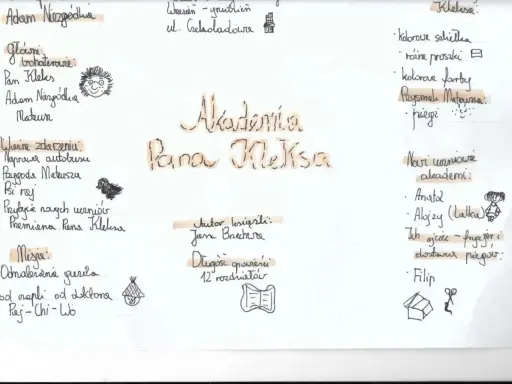 Adam Niezgódka
Główni
bohaterowie:
Pan Kleks
Adam Niezgódka
Mateusz
Ważne zdarzenia:
Naprawa autobusu
Przygoda Mateusza
Psi raj
Przybycie nowych uczniów
Przemiana Pana Kleksa
Misja:
Odnalezienie guzika
od czapki od doktora
Paj-Chi-Wo
Wrzesień - grudzień
ul. Czekoladowa
Akademia
Pana Kleksa
Autor książki:
Jan Brzechwa
Długość opowieści:
12 rozdziałów
Kleksa:
· kolorowe szkiełka
· różne proszki
· kolorowe farby
Przysmak Mateusza:
· piegi
Nowi uczniowie
akademii:
· Anatol
· Alojzy (Lalka)
Ich ojciec - fryzjer i
dostawca piegów:
· Filip